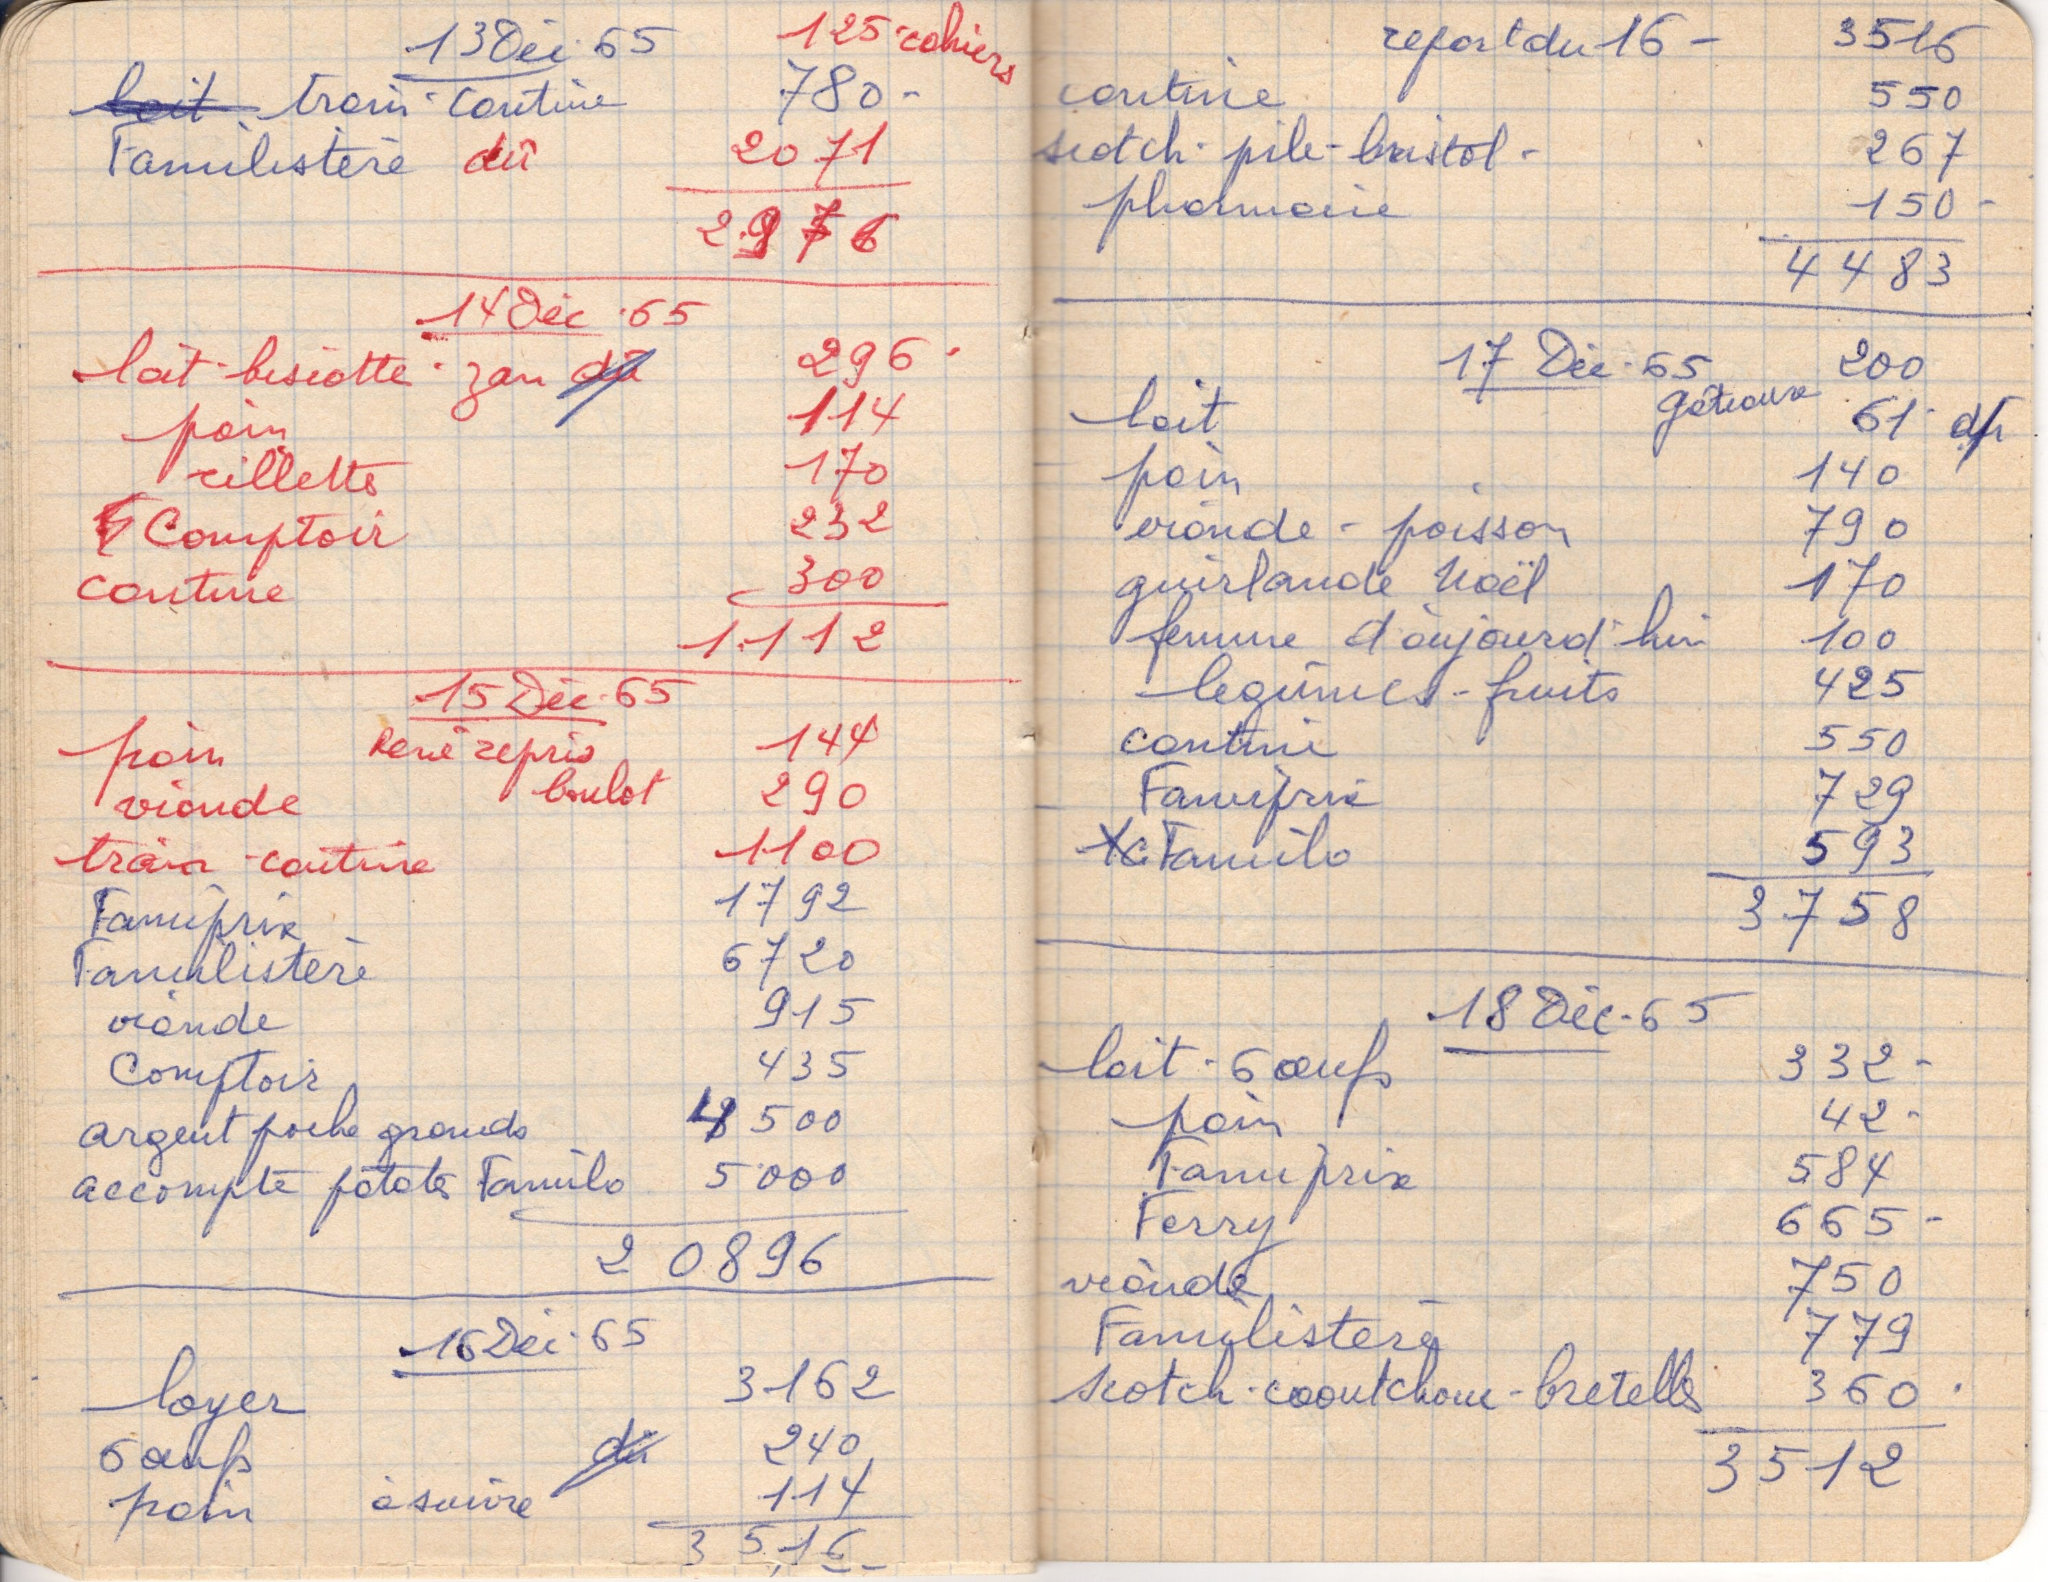 13 Déc. 65 125 cahiers
lait train - cantine 780 -
Familistère dû 2071
2976
14 Déc. 65
lait - biscotte - zan dû 296
pain 114
rillette 170
Comptoir 232
cantine 300
1.112
15 Déc. 65
pain René repris 144
viande boulot 290
train - cantine 1100
Famiprix 1792
Familistère 6720
viande 915
Comptoir 435
argent poche grands 4500
accompte patates Familo 5000
20896
16 Déc. 65
loyer 3162
6 œufs dû 240
pain à suivre 114
3516
report du 16 - 3516
cantine 550
scotch - pile - bristol - 267
pharmacie 150 -
4483
17 Déc. 65 200
lait gâteaux 61 dû
pain 140
viande - poisson 790
guirlande Noël 170
femme d'aujourd'hui 100
legûmes - fruits 425
cantine 550
Famiprix 729
Familo 593
3758
18 Déc. 65
lait - 6 œufs 332 -
pain 42 -
Famiprix 584
Ferry 665 -
viande 750
Familistère 779
scotch - caoutchouc - bretelles 360
3512